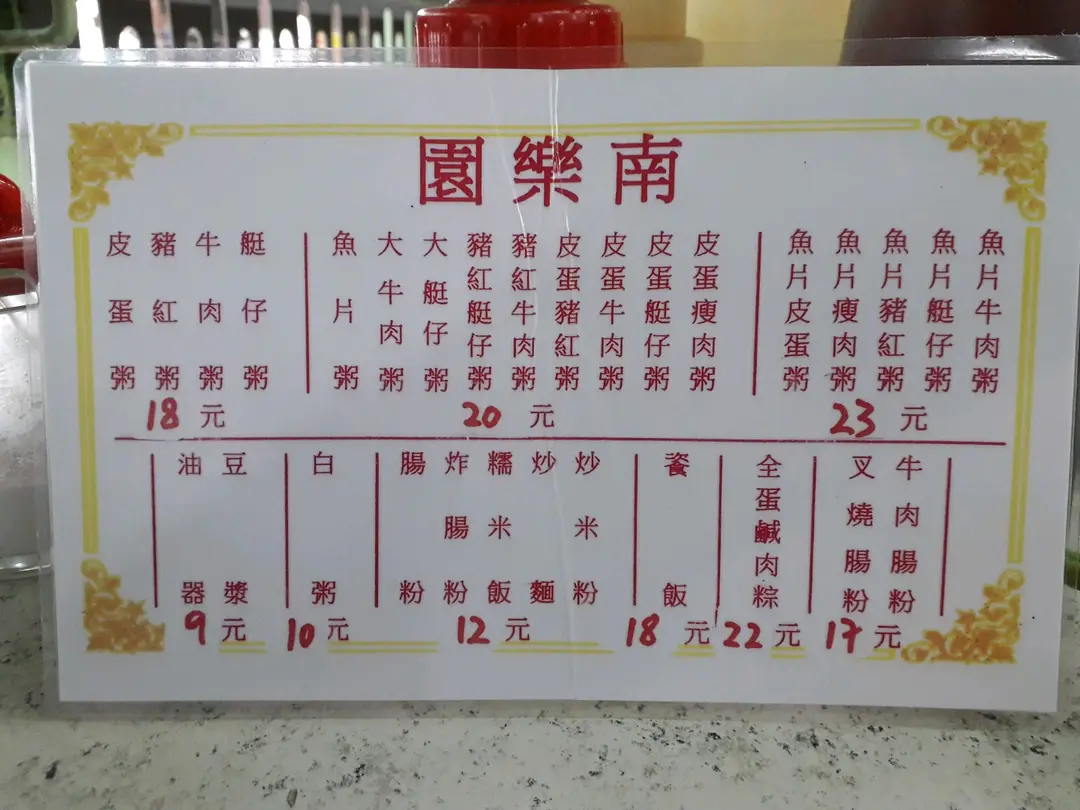 南樂園
魚片牛肉粥
魚片艇仔粥
魚片豬紅粥
魚片瘦肉粥
魚片皮蛋粥
23元
皮蛋瘦肉粥
皮蛋艇仔粥
皮蛋牛肉粥
皮蛋豬紅粥
豬紅牛肉粥
豬紅艇仔粥
大艇仔粥
大牛肉粥
魚片粥
20元
艇仔粥
牛肉粥
豬紅粥
皮蛋粥
18元
牛肉腸粉
叉燒腸粉
17元
全蛋鹹肉粽
22元
餈飯
18元
炒米粉
炒麵
糯米飯
炸腸粉
腸粉
12元
白粥
10元
豆漿
油器
9元